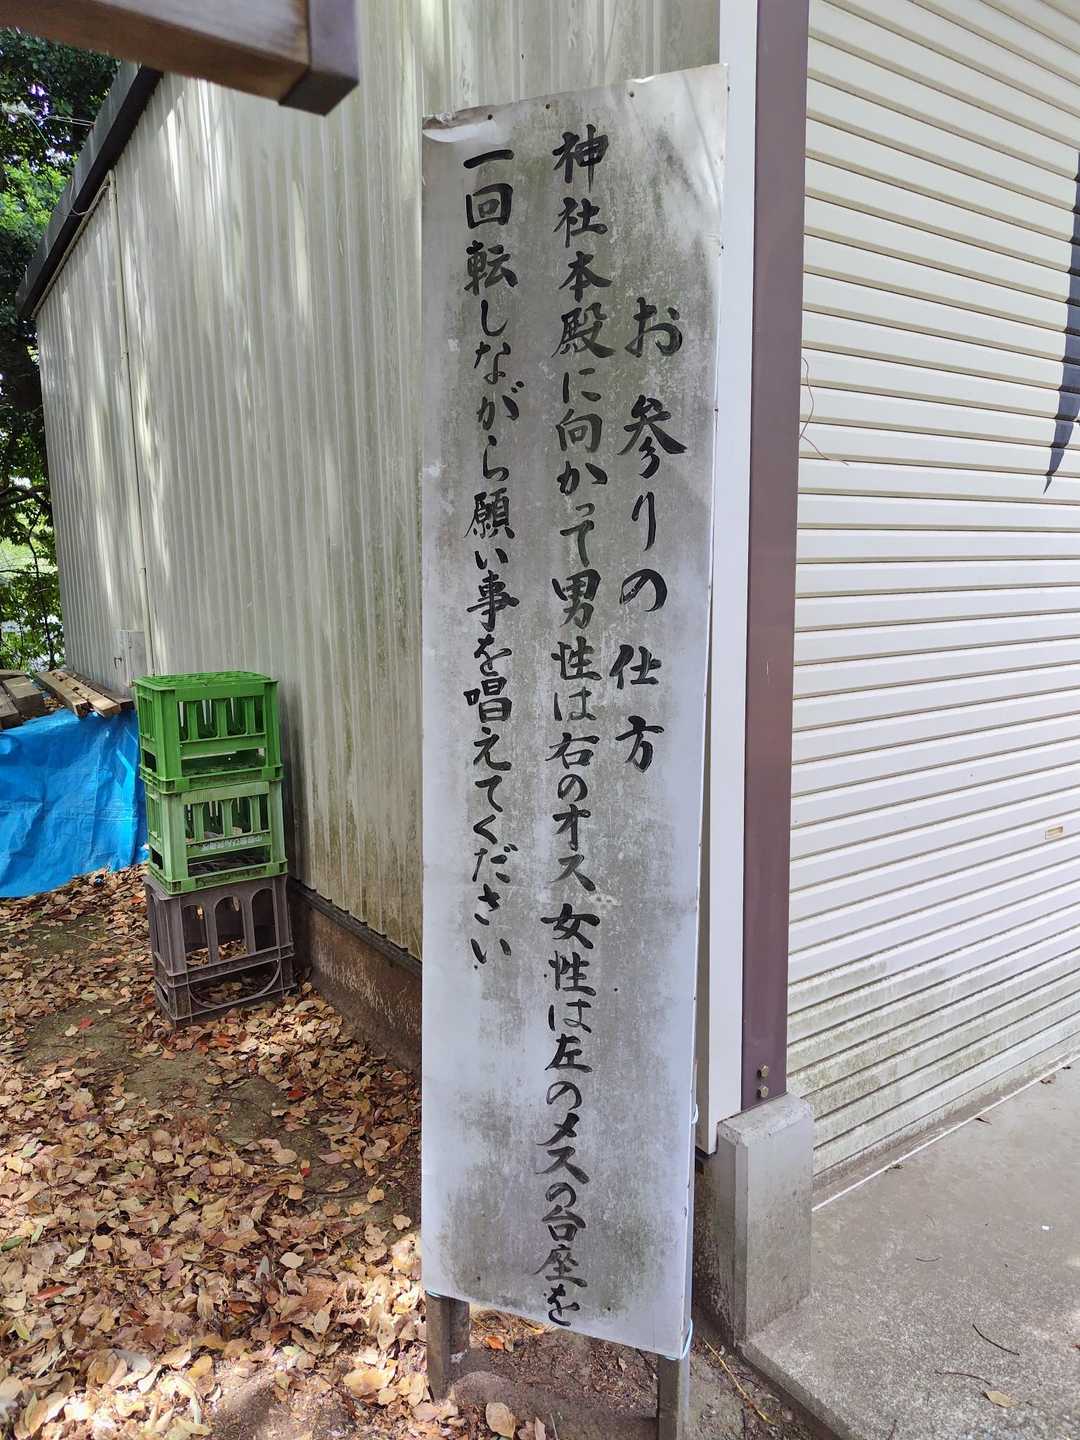 お参りの仕方
神社本殿に向かって男性は右のオス女性は左のメスの台座を
一回転しながら願い事を唱えてください